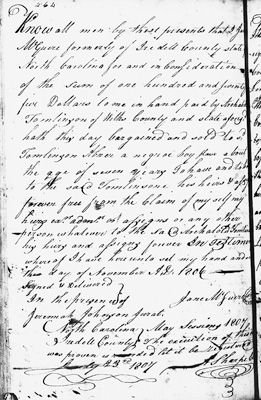 464
Know all men by these presents that I Jane
McGuire formerly of Iredell County State
North Carolina for and in Consideration
of the Sum of one hundred and seventy
five Dollars to me in hand paid by Archibald
Tomlinson of Wilks County and State aforesd
hath this day bargained and sold to sd
Tomlinson a negroe boy
the age of seven years To have and
to the said Tomlinson his heirs
forever free from the claim of my self my
heirs exr. admr. or assigns or any other
person whatever to the sd. Archabald Tomlinson
his heirs and assigns forever In Testimony
whereof I have hereunto set my hand and
this day of November AD. 1806
Signed & Delivered
In the presence of Jane McGuire
Jeremiah Johnson Jurat
North Carolina May Sessions 1807
Iredell County The execution of
was proven recorded let it be Registered
1807